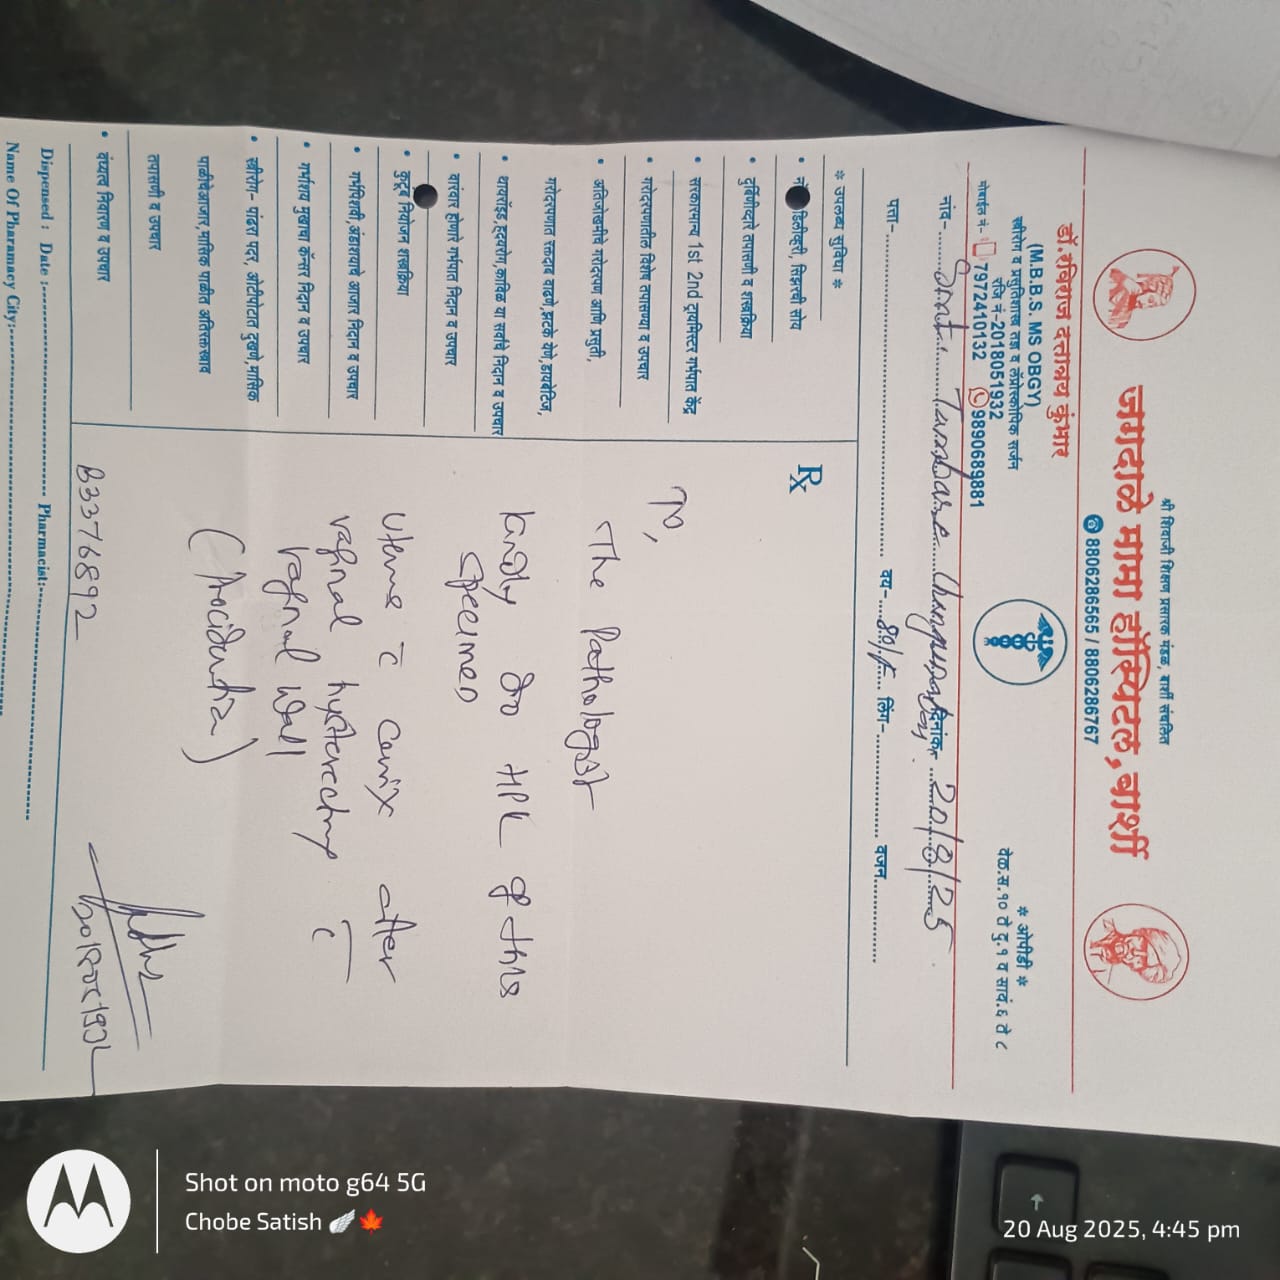 श्री शिवाजी शिक्षण प्रसारक मंडळ, बार्शी संचलित
जगदाळे मामा हॉस्पिटल, बार्शी
8806286565 / 8806286767
डॉ. रविराज दत्तात्रय कुंभार
(M.B.B.S. MS OBGY)
स्त्रीरोग व प्रसुतिशास्त्र तज्ञ व लॅप्रोस्कोपिक सर्जन
रजि नं-2018051932
मोबाईल नं- 7972410132 9890689881
* ओपीडी *
वेळ.स.१० ते दु.१ व सायं.६ ते ८
नांव- Smt. Tumbare दिनांक 20/8/25
पत्ता- वय- 80/F लिंग- वजन
* उपलब्ध सुविधा *
डिलीव्हरी, सिझरची सोय
दुर्बिणीव्दारे तपासणी व शस्त्रक्रिया
सरकारमान्य 1st 2nd ट्रायमिस्टर गर्भपात केंद्र
गरोदरपणातील विशेष तपासण्या व उपचार
अतिजोखमीचे गरोदरपण आणि प्रसुती,
गरोदरपणात रक्तदाब वाढणे,झटके येणे,डायबेटिज,
थायरॉइड,हृदयरोग,काविळ या सर्वांचे निदान व उपचार
वारंवार होणारे गर्भपात निदान व उपचार
कुटूंब नियोजन शस्त्रक्रिया
गर्भपिशवी,अंडाशयाचे आजार निदान व उपचार
गर्भाशय मुखाचा कॅन्सर निदान व उपचार
स्त्रीरोग- पांढरा पदर, ओटीपोटात दुखणे,मासिक
पाळीचेआजार,मासिक पाळीत अतिरक्तस्त्राव
तपासणी व उपचार
वंध्यत्व निवारण व उपचार
Rx
To,
The Pathologist
Kindly do HPE of this
specimen
Uterus c̄ cervix after
vaginal hysterectomy c̄
vaginal wall
(Procidentia)
B3376892
Dispensed : Date : Pharmacist:
Name Of Pharmacy City:
Shot on moto g64 5G
Chobe Satish 🪽🍁
20 Aug 2025, 4:45 pm